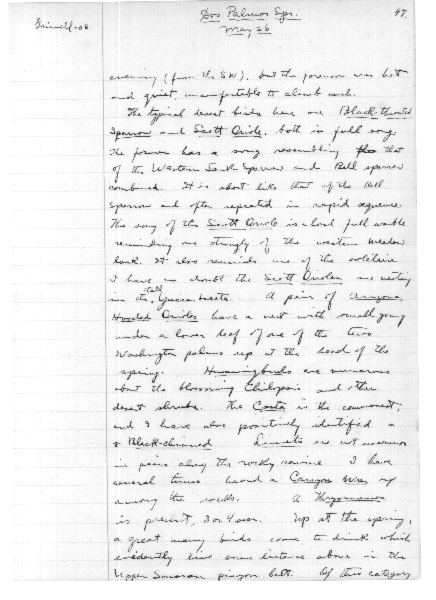 Grinnell-08
Dos Palmos Spr.
47.
May 26
evening (from the SW), but the forenoon was hot
and quiet, uncomfortable to climb much.
The typical desert birds here are Black-throated
Sparrow and Scott Oriole, both in full song.
The former has a song resembling that
of the Western Lark Sparrow and Bell sparrow
combined. It is about like that of the Bell
Sparrow and often repeated in rapid sequence.
The song of the Scott Oriole is a loud full warble
reminding one strongly of the western meadow
lark. It also reminds one of the solitaire.
I have no doubt the Scott Orioles are nesting
in the tall Yucca
A pair of Arizona
Hooded Orioles have a nest with small young
under a lower leaf of one of the two
Washington palms up at the head of the
spring. Hummingbirds are numerous
about the blossoming Chilopsis and other
desert shrubs. The Costa is the commonest,
and I have also positively identified a
♂ Black-chinned. Linnets are not uncommon
in pairs along the rocky ravine. I have
several times heard a Canyon Wren up
among the rocks. A Thryomanes
is present, 3 or 4 seen. Up at the spring,
a great many birds come to drink which
evidently live some distance above in the
Upper Sonoran pinyon belt. Of this category